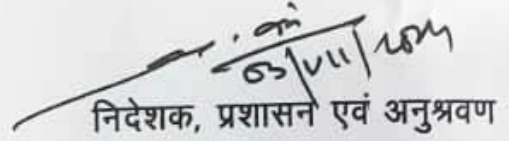 03/VII/2024
निदेशक, प्रशासन एवं अनुश्रवण